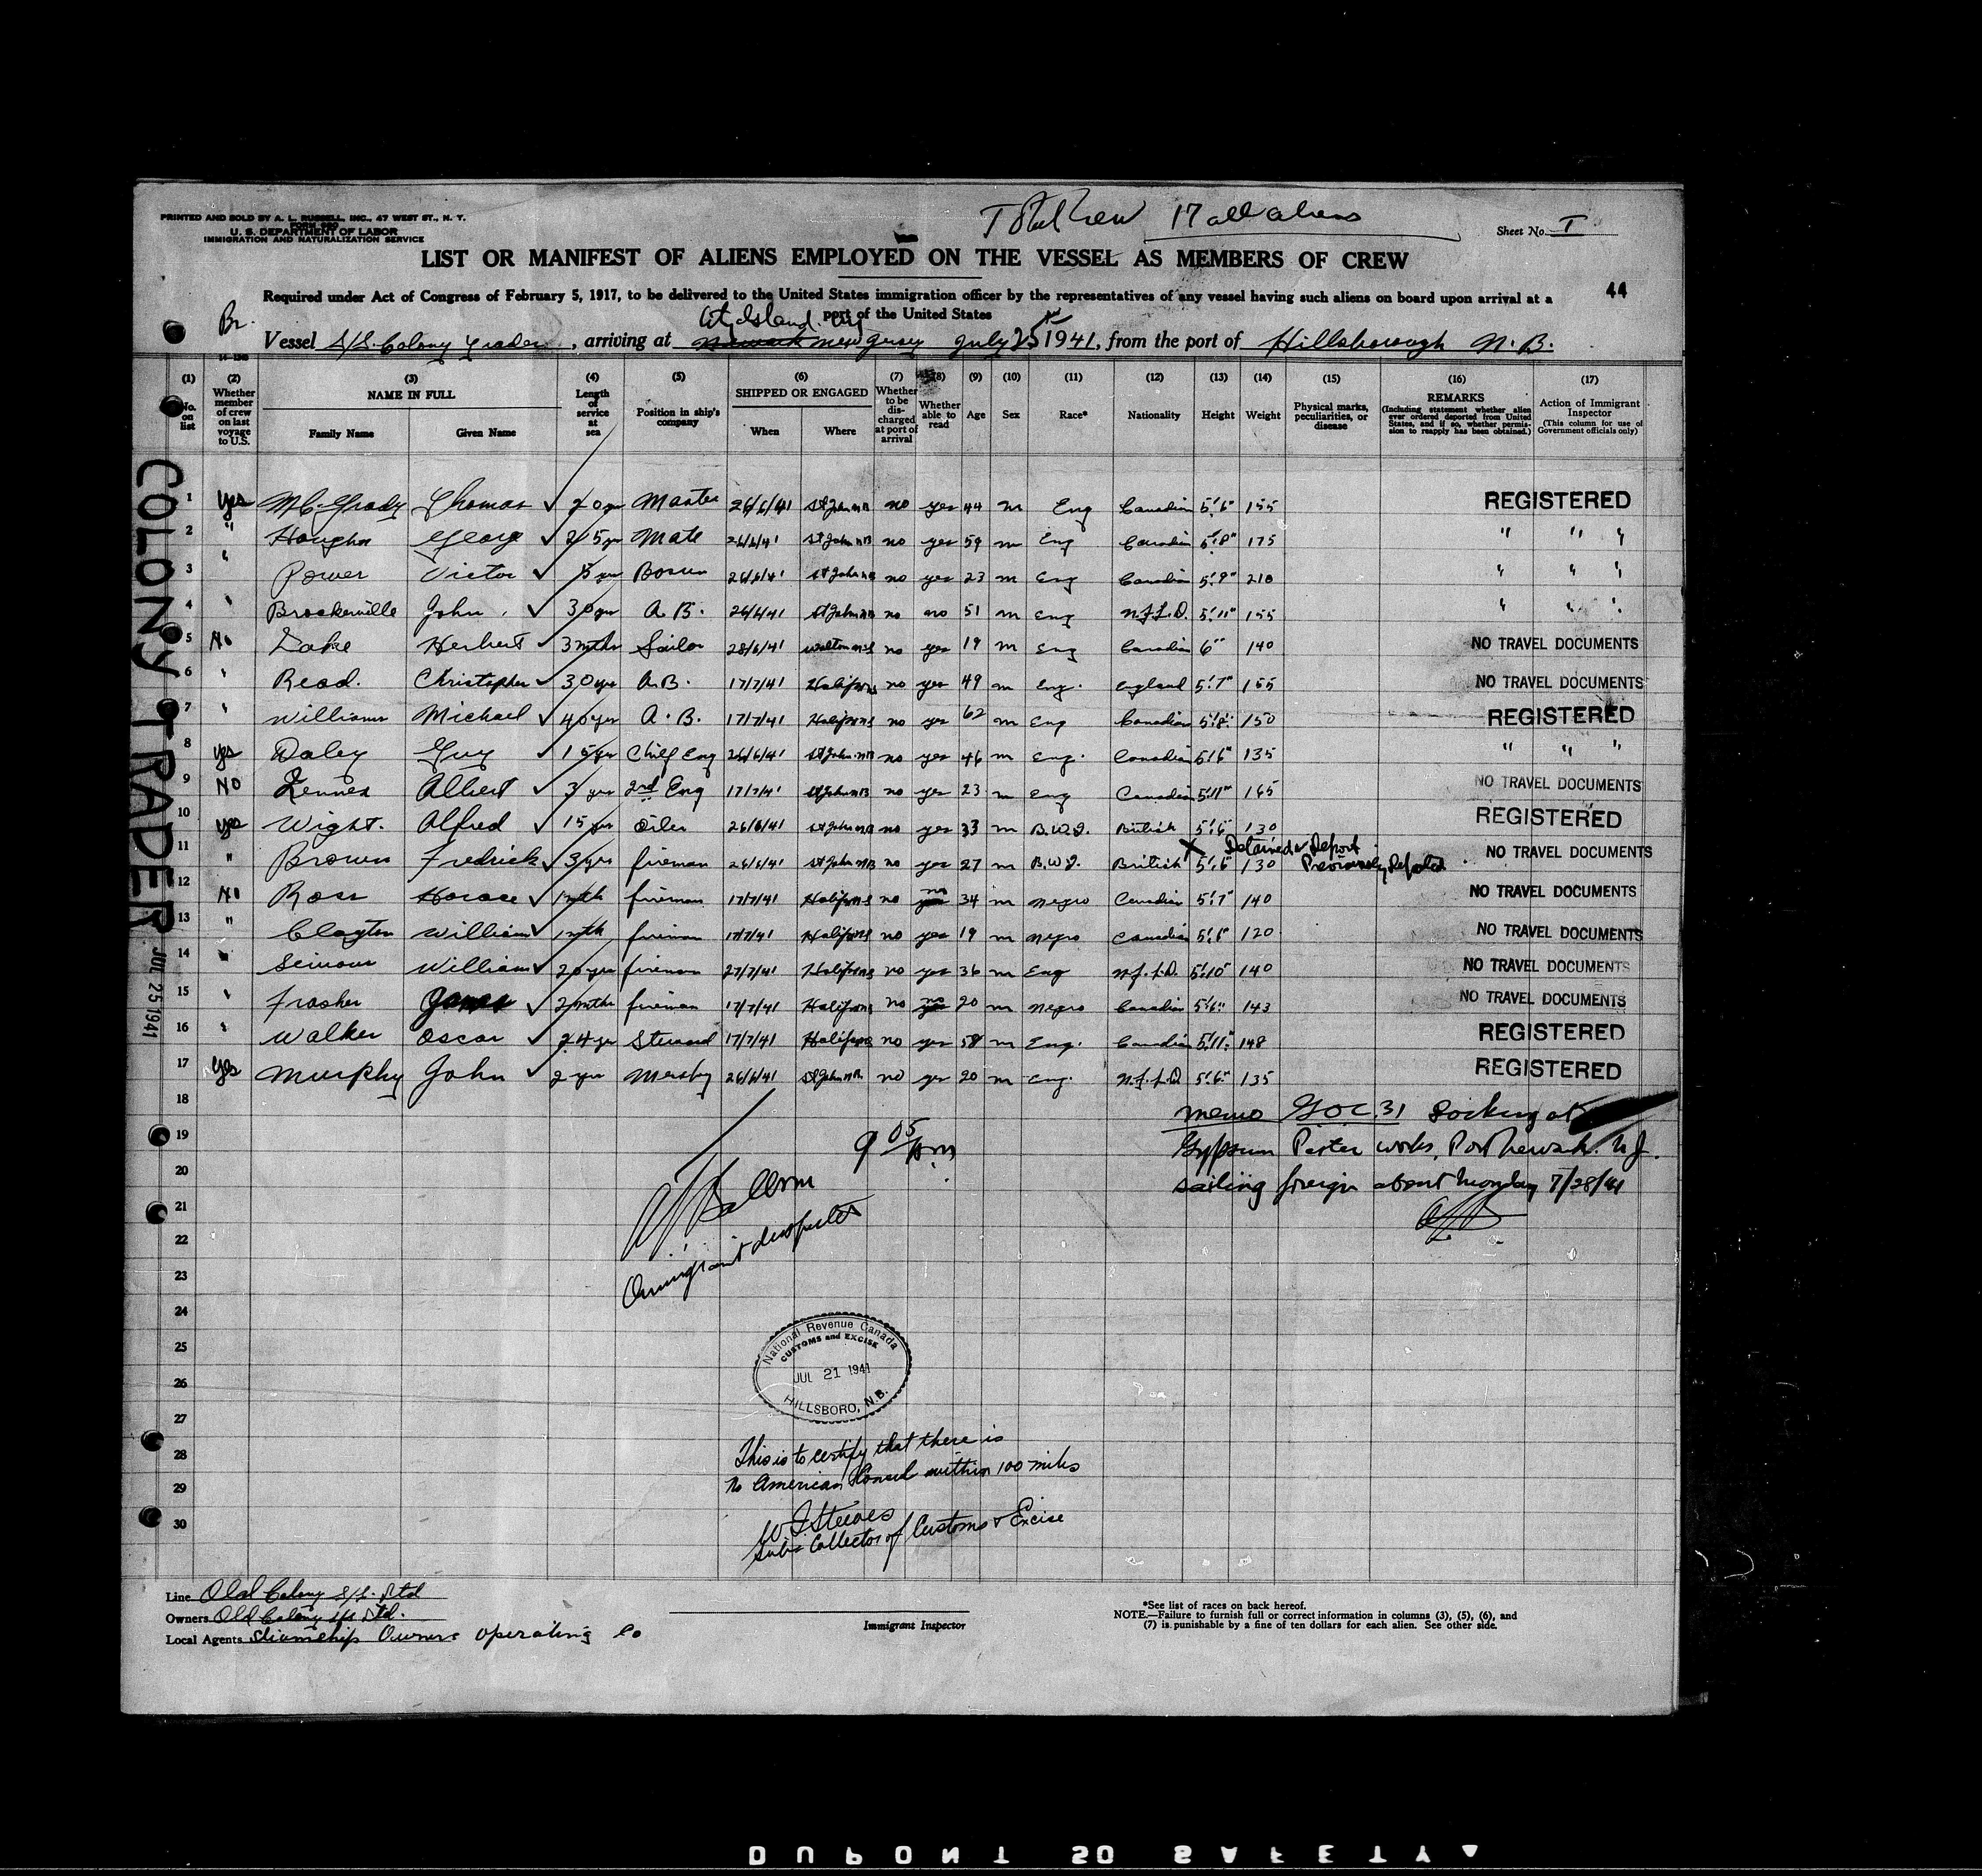 PRINTED AND SOLD BY A. L. RUSSELL, INC., 47 WEST ST., N. Y.
U. S. DEPARTMENT OF LABOR
IMMIGRATION AND NATURALIZATION SERVICE
Total Crew 17 all aliens
Sheet No. I
LIST OR MANIFEST OF ALIENS EMPLOYED ON THE VESSEL AS MEMBERS OF CREW
Required under Act of Congress of February 5, 1917, to be delivered to the United States immigration officer by the representatives of any vessel having such aliens on board upon arrival at a
port of the United States
44
Br.
City Island. N.Y.
Vessel S/S. Colony Trader, arriving at Newark New Jersey July 25 1941, from the port of Hillsborough N. B.
(1) No. on list
(2) Whether member of crew on last voyage to U.S.
(3) NAME IN FULL Family Name Given Name
(4) Length of service at sea
(5) Position in ship's company
(6) SHIPPED OR ENGAGED When Where
(7) Whether to be discharged at port of arrival
(8) Whether able to read
(9) Age
(10) Sex
(11) Race*
(12) Nationality
(13) Height
(14) Weight
(15) Physical marks, peculiarities, or disease
(16) REMARKS (Including statement whether alien ever ordered deported from United States, and if so, whether permission to reapply has been obtained.)
(17) Action of Immigrant Inspector (This column for use of Government officials only)
COLONY TRADER JUL 25 1941
1 Yes McGrady Thomas ✓ 20 yr Master 26/6/41 St John NB no yes 44 m Eng Canadian 5'.6" 155 REGISTERED
2 " George ✓ 25 yr Mate 26/6/41 St John NB no yes 59 m Eng Canadian 5'.8" 175 " " "
3 " Power Victor ✓ 5 yr Bosun 26/6/41 St John NB no yes 23 m Eng Canadian 5'.9" 210 " " "
4 " Brockerville John ✓ 30 yr A. B. 26/6/41 St John NB no no 51 m Eng N.F.L.D. 5'.11" 155 " " "
5 No Lake Herbert ✓ 3 mths Sailor 28/6/41 Walton NS no yes 19 m Eng Canadian 6" 140 NO TRAVEL DOCUMENTS
6 " Read. Christopher ✓ 30 yrs A.B. 17/7/41 Halifax NS no yes 49 m Eng. England 5'.7" 155 NO TRAVEL DOCUMENTS
7 " Williams Michael ✓ 40 yr A. B. 17/7/41 Halifax NS no yes 62 m Eng Canadian 5'.8" 150 REGISTERED
8 yes Daley Guy ✓ 15 yr Chief Eng 26/6/41 St John NB no yes 46 m Eng. Canadian 5'.6" 135 " " "
9 No Albert ✓ 3 yrs 2nd Eng 17/7/41 St John NB no yes 23 m Eng Canadian 5'11" 165 NO TRAVEL DOCUMENTS
10 yes Wight. Alfred ✓ 15 yr Oiler 26/6/41 St John NB no yes 33 m B.W.I. British 5'.6" 130 REGISTERED
11 " Brown Fredrick ✓ 3 yrs fireman 26/6/41 St John NB no yes 27 m B.W.I. British X 5'.6" 130 Detained & Deport Previously Deported NO TRAVEL DOCUMENTS
12 No Ross Horace ✓ 1 mth fireman 17/7/41 Halifax NS no no 34 m Negro Canadian 5'.7" 140 NO TRAVEL DOCUMENTS
13 " Clayton William ✓ 1 mth fireman 17/7/41 Halifax NS no yes 19 m Negro Canadian 5'.6" 120 NO TRAVEL DOCUMENTS
14 " Seimour William ✓ 20 yrs fireman 27/7/41 Halifax NS no yes 36 m Eng N.F.L.D. 5'.10" 140 NO TRAVEL DOCUMENTS
15 " Frasher James ✓ 2 mths fireman 17/7/41 Halifax NS no no 20 m Negro Canadian 5'.6" 143 NO TRAVEL DOCUMENTS
16 " Walker Oscar ✓ 24 yr Steward 17/7/41 Halifax NS no yes 58 m Eng. Canadian 5'.11" 148 REGISTERED
17 Yes Murphy John ✓ 2 yrs Mesby 26/6/41 St John NB no yes 20 m Eng. N.F.L.D 5'.6" 135 REGISTERED
18
19
20
21
22
23
24
25
26
27
28
29
30
memo Docking at
Gypsum Plaster works, Port Newark. N.J.
sailing foreign about Monday 7/28/41
9 05 pm
Immigrant Inspector
National Revenue Canada
CUSTOMS and EXCISE
JUL 21 1941
HILLSBORO, N.B.
This is to certify that there is
no American Consul within 100 miles
W. J. Steeves
Sub-Collector of Customs & Excise
Line Old Colony S/S. Ltd
Owners Old Colony S/S Ltd.
Local Agents Steamship Owners Operating Co
Immigrant Inspector
*See list of races on back hereof.
NOTE.—Failure to furnish full or correct information in columns (3), (5), (6), and
(7) is punishable by a fine of ten dollars for each alien. See other side.
DUPONT 50 SAFETY